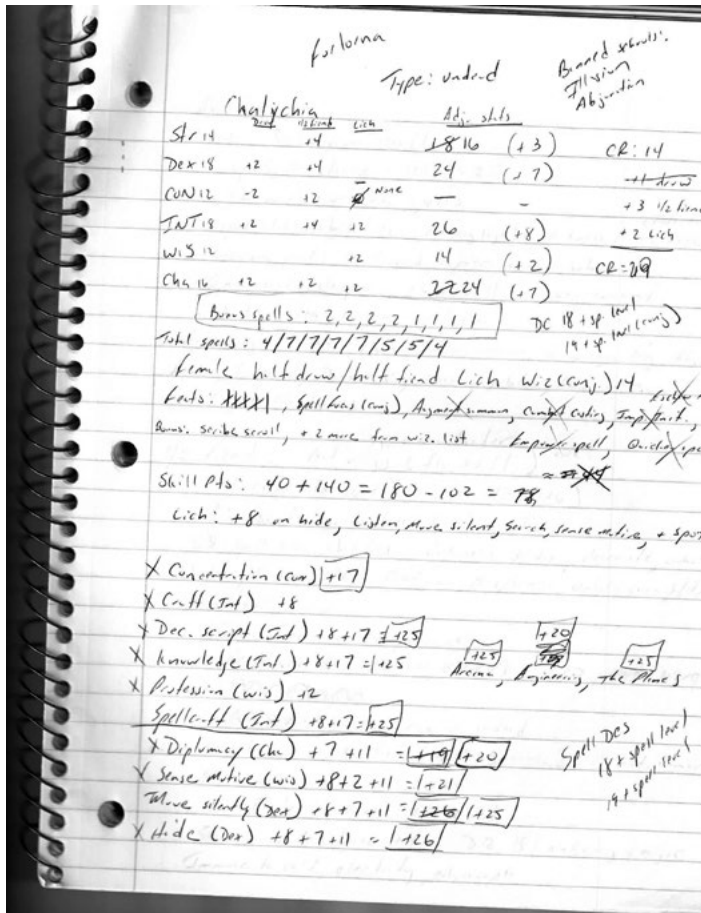 forlorna
Type: undead
Banned schools:
Illusion
Abjuration
Chalychia
Drow 1/2 fiend Lich Adj. stats
Str 14 +4 16 (+3) CR: 14
Dex 18 +2 +4 24 (+7)
CON 12 -2 +2 None — - +3 1/2 fiend
INT 18 +2 +4 +2 26 (+8) +2 Lich
WIS 12 +2 14 (+2) CR=
Cha 16 +2 +2 +2 24 (+7)
Bonus spells: 2, 2, 2, 2, 1, 1, 1, 1
DC 18 + sp. level
19 + sp. level (conj)
Total spells: 4/7/7/7/7/5/5/4
female half drow/half fiend Lich Wiz (conj.) 14
Feats: , Spell focus (conj), Augment summon, Combat Casting, Imp. Init.,
Bonus: scribe scroll, + 2 more from wiz. list Empower spell, Quicken spe
Skill Pts: 40 + 140 = 180 - 102 = 78
Lich: +8 on hide, Listen, Move silent, Search, sense motive, + spot
X Concentration (Con) +17
X Craft (Int) +8
X Dec. script (Int) +8+17 = +25
X Knowledge (Int.) +8+17 = +25
+25 +20 +25
Arcana, Engineering, the Planes
X Profession (wis) +2
Spellcraft (Int) +8+17= +25
X Diplomacy (Cha) +7 +11 = +19 +20
X Sense Motive (wis) +8+2+11 = +21
Move silently (Dex) +8+7+11 = +26 +25
X Hide (Dex) +8+7+11 = +26
Spell DCs
18 + spell level
19 + spell level